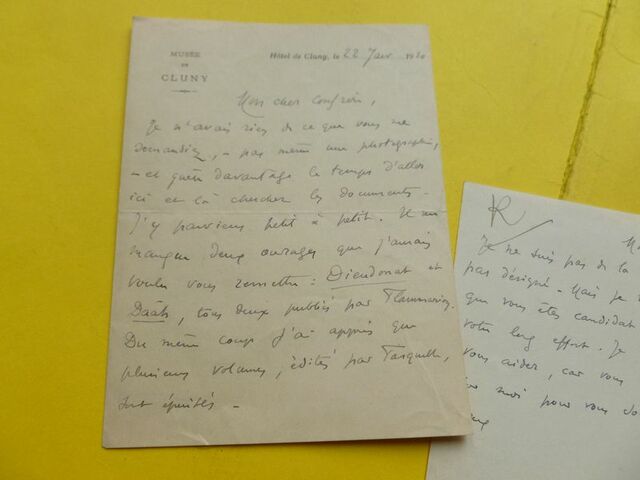 MUSÉE
DE
CLUNY
Hôtel de Cluny, le 22 Janv. 1920
Mon cher Confrère,
Je n'avais rien de ce que vous me
demandiez, - pas même une photographie,
- et guère davantage le temps d'aller
ici et là chercher les documents.
J'y parviens petit à petit. Il me
manque deux ouvrages que j'aurais
voulu vous remettre : Dieudonat et
Daâh, tous deux publiés par Flammarion.
Du même coup j'ai appris que
plusieurs volumes, édités par Fasquelle,
sont épuisés -
R
Je ne suis pas de la
pas désigné - Mais je
que vous êtes candidat
votre long effort. Je
vous aider, car vous
moi pour vous